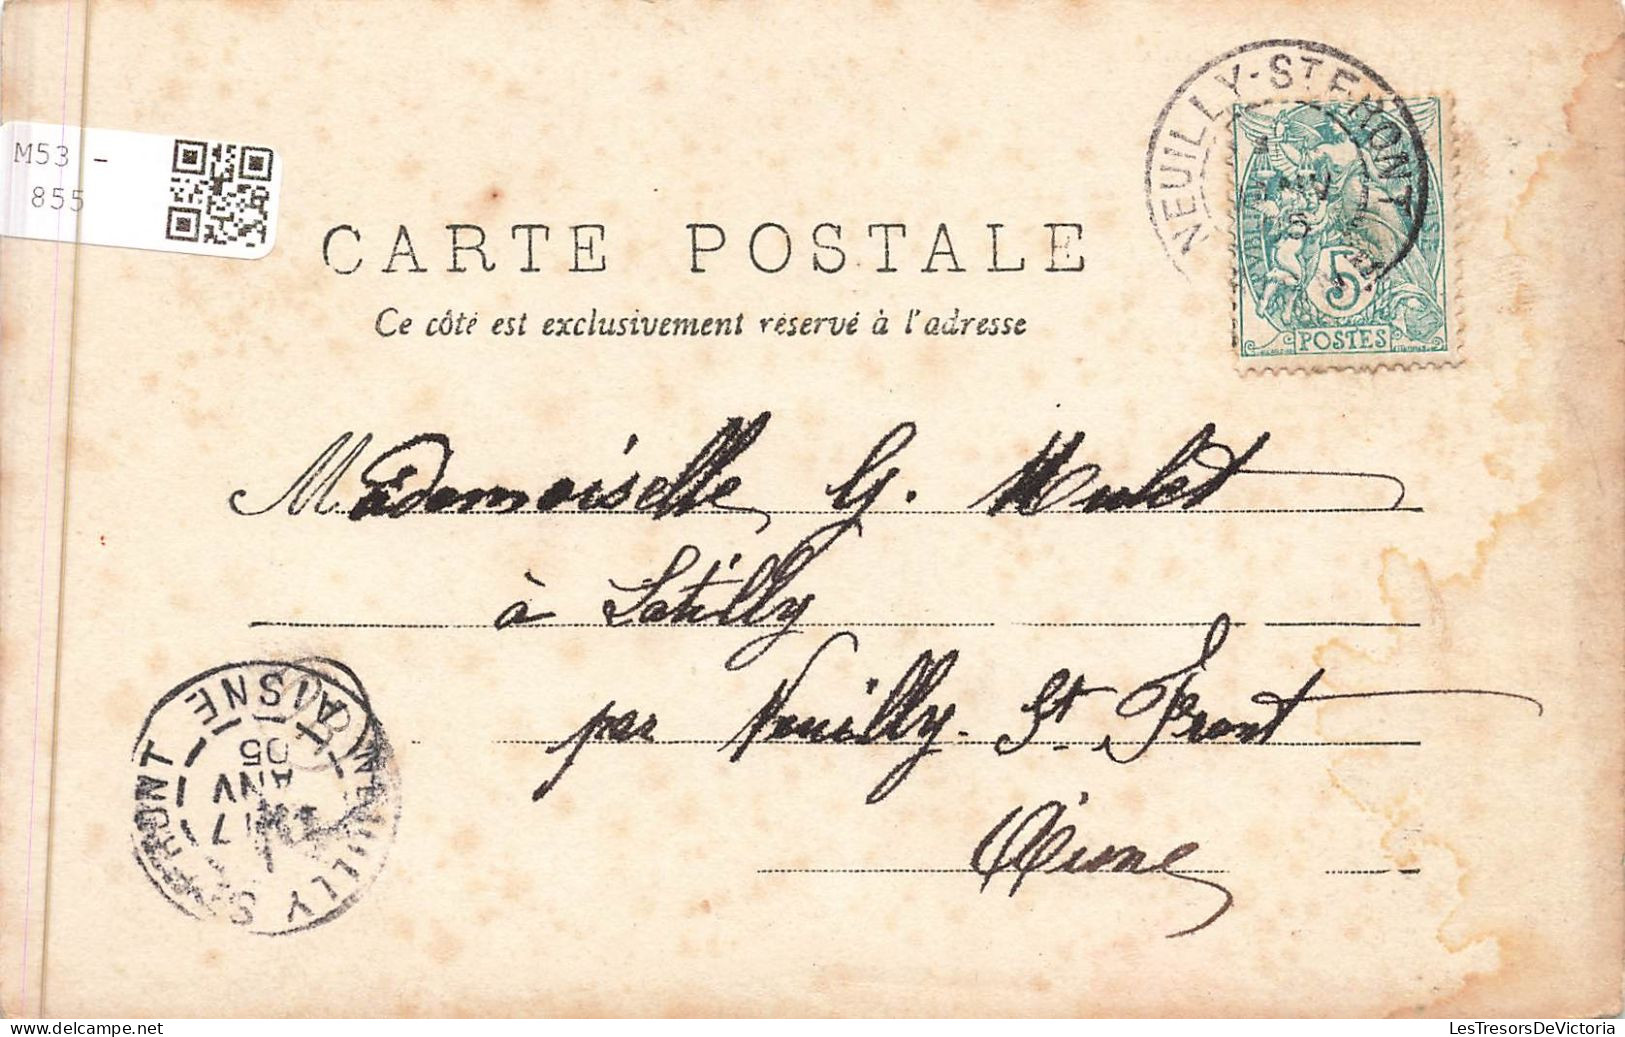 M53 -
855
NEUILLY-ST FRONT
5
POSTES
CARTE POSTALE
Ce côté est exclusivement réservé à l'adresse
Mademoiselle G. Mulet
à Latilly
par Neuilly-St Front
Aisne
NEUILLY ST FRONT AISNE
17
JANV
05
LesTresorsDeVictoria